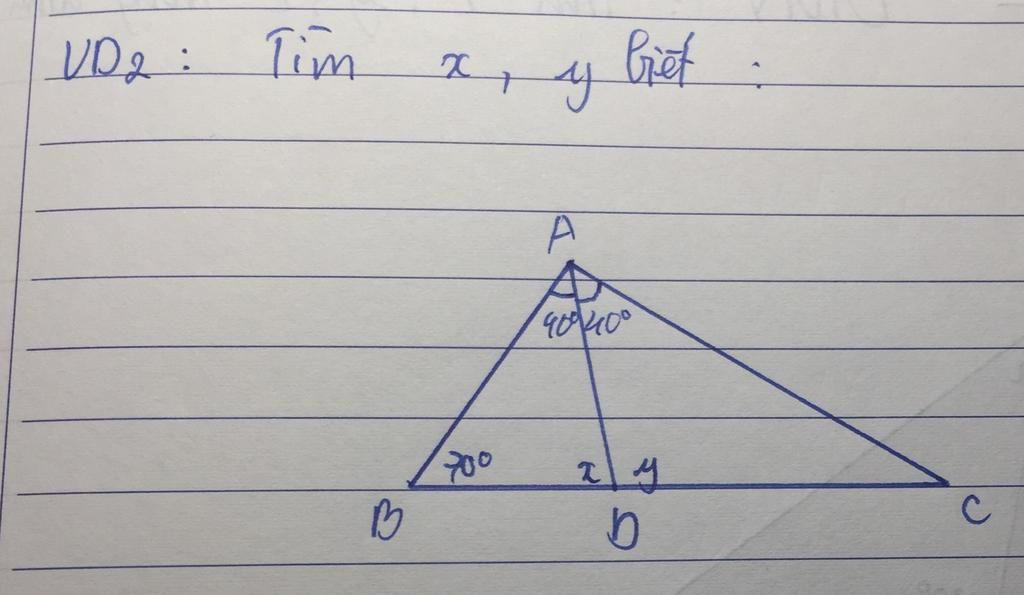 VD2 : Tìm x , y biết :
A
40° 40°
70° x y
B D C